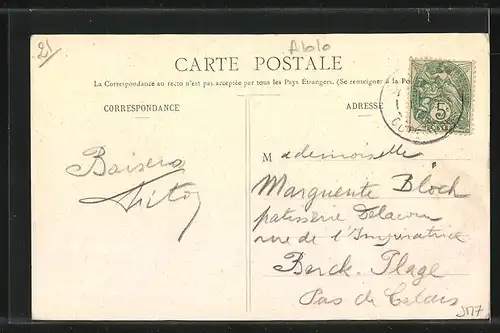 21
Ablo
CARTE POSTALE
La Correspondance au recto n'est pas acceptée par tous les Pays Étrangers. (Se renseigner à la Po
CORRESPONDANCE
ADRESSE
5
Baisers
Mademoiselle
Marguerite Bloch
patisserie Delacour
rue de l'Impératrice
Berck-Plage
Pas de Calais